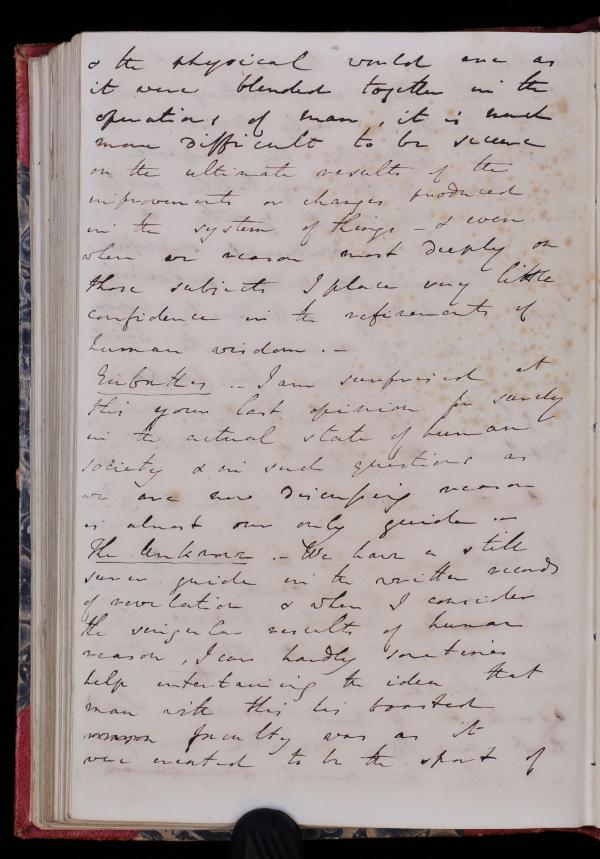 & the physical world are as
it were blended together in the
operations of man, it is much
more difficult to be secure
on the ultimate results of the
improvements or changes produced
in the system of things - & even
when we reason most deeply on
those subjects I place very little
confidence in the refinements of
human wisdom. -
Eubathes - I am surprised at
this your last opinion for surely
in the actual state of human
society & in such questions as
we are now discussing reason
is almost our only guide -
The Unknown - We have a still
surer guide in the written records
of revelation & when I consider
the singular results of human
reason, I can hardly sometimes
help entertaining the idea that
man with this his boasted
faculty was as it
were created to be the sport of